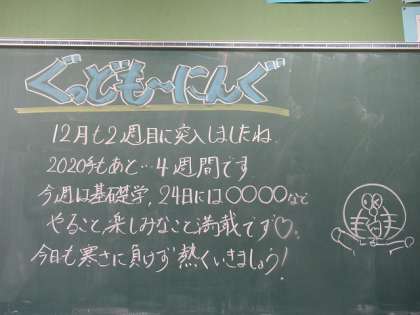 ぐっども〜にんぐ
12月も2週目に突入しましたね.
2020年もあと…4週間です
今週は基礎学,24日には〇〇〇〇など
やること楽しみなこと満載です♡.
今日も寒さに負けず熱くいきましょう!